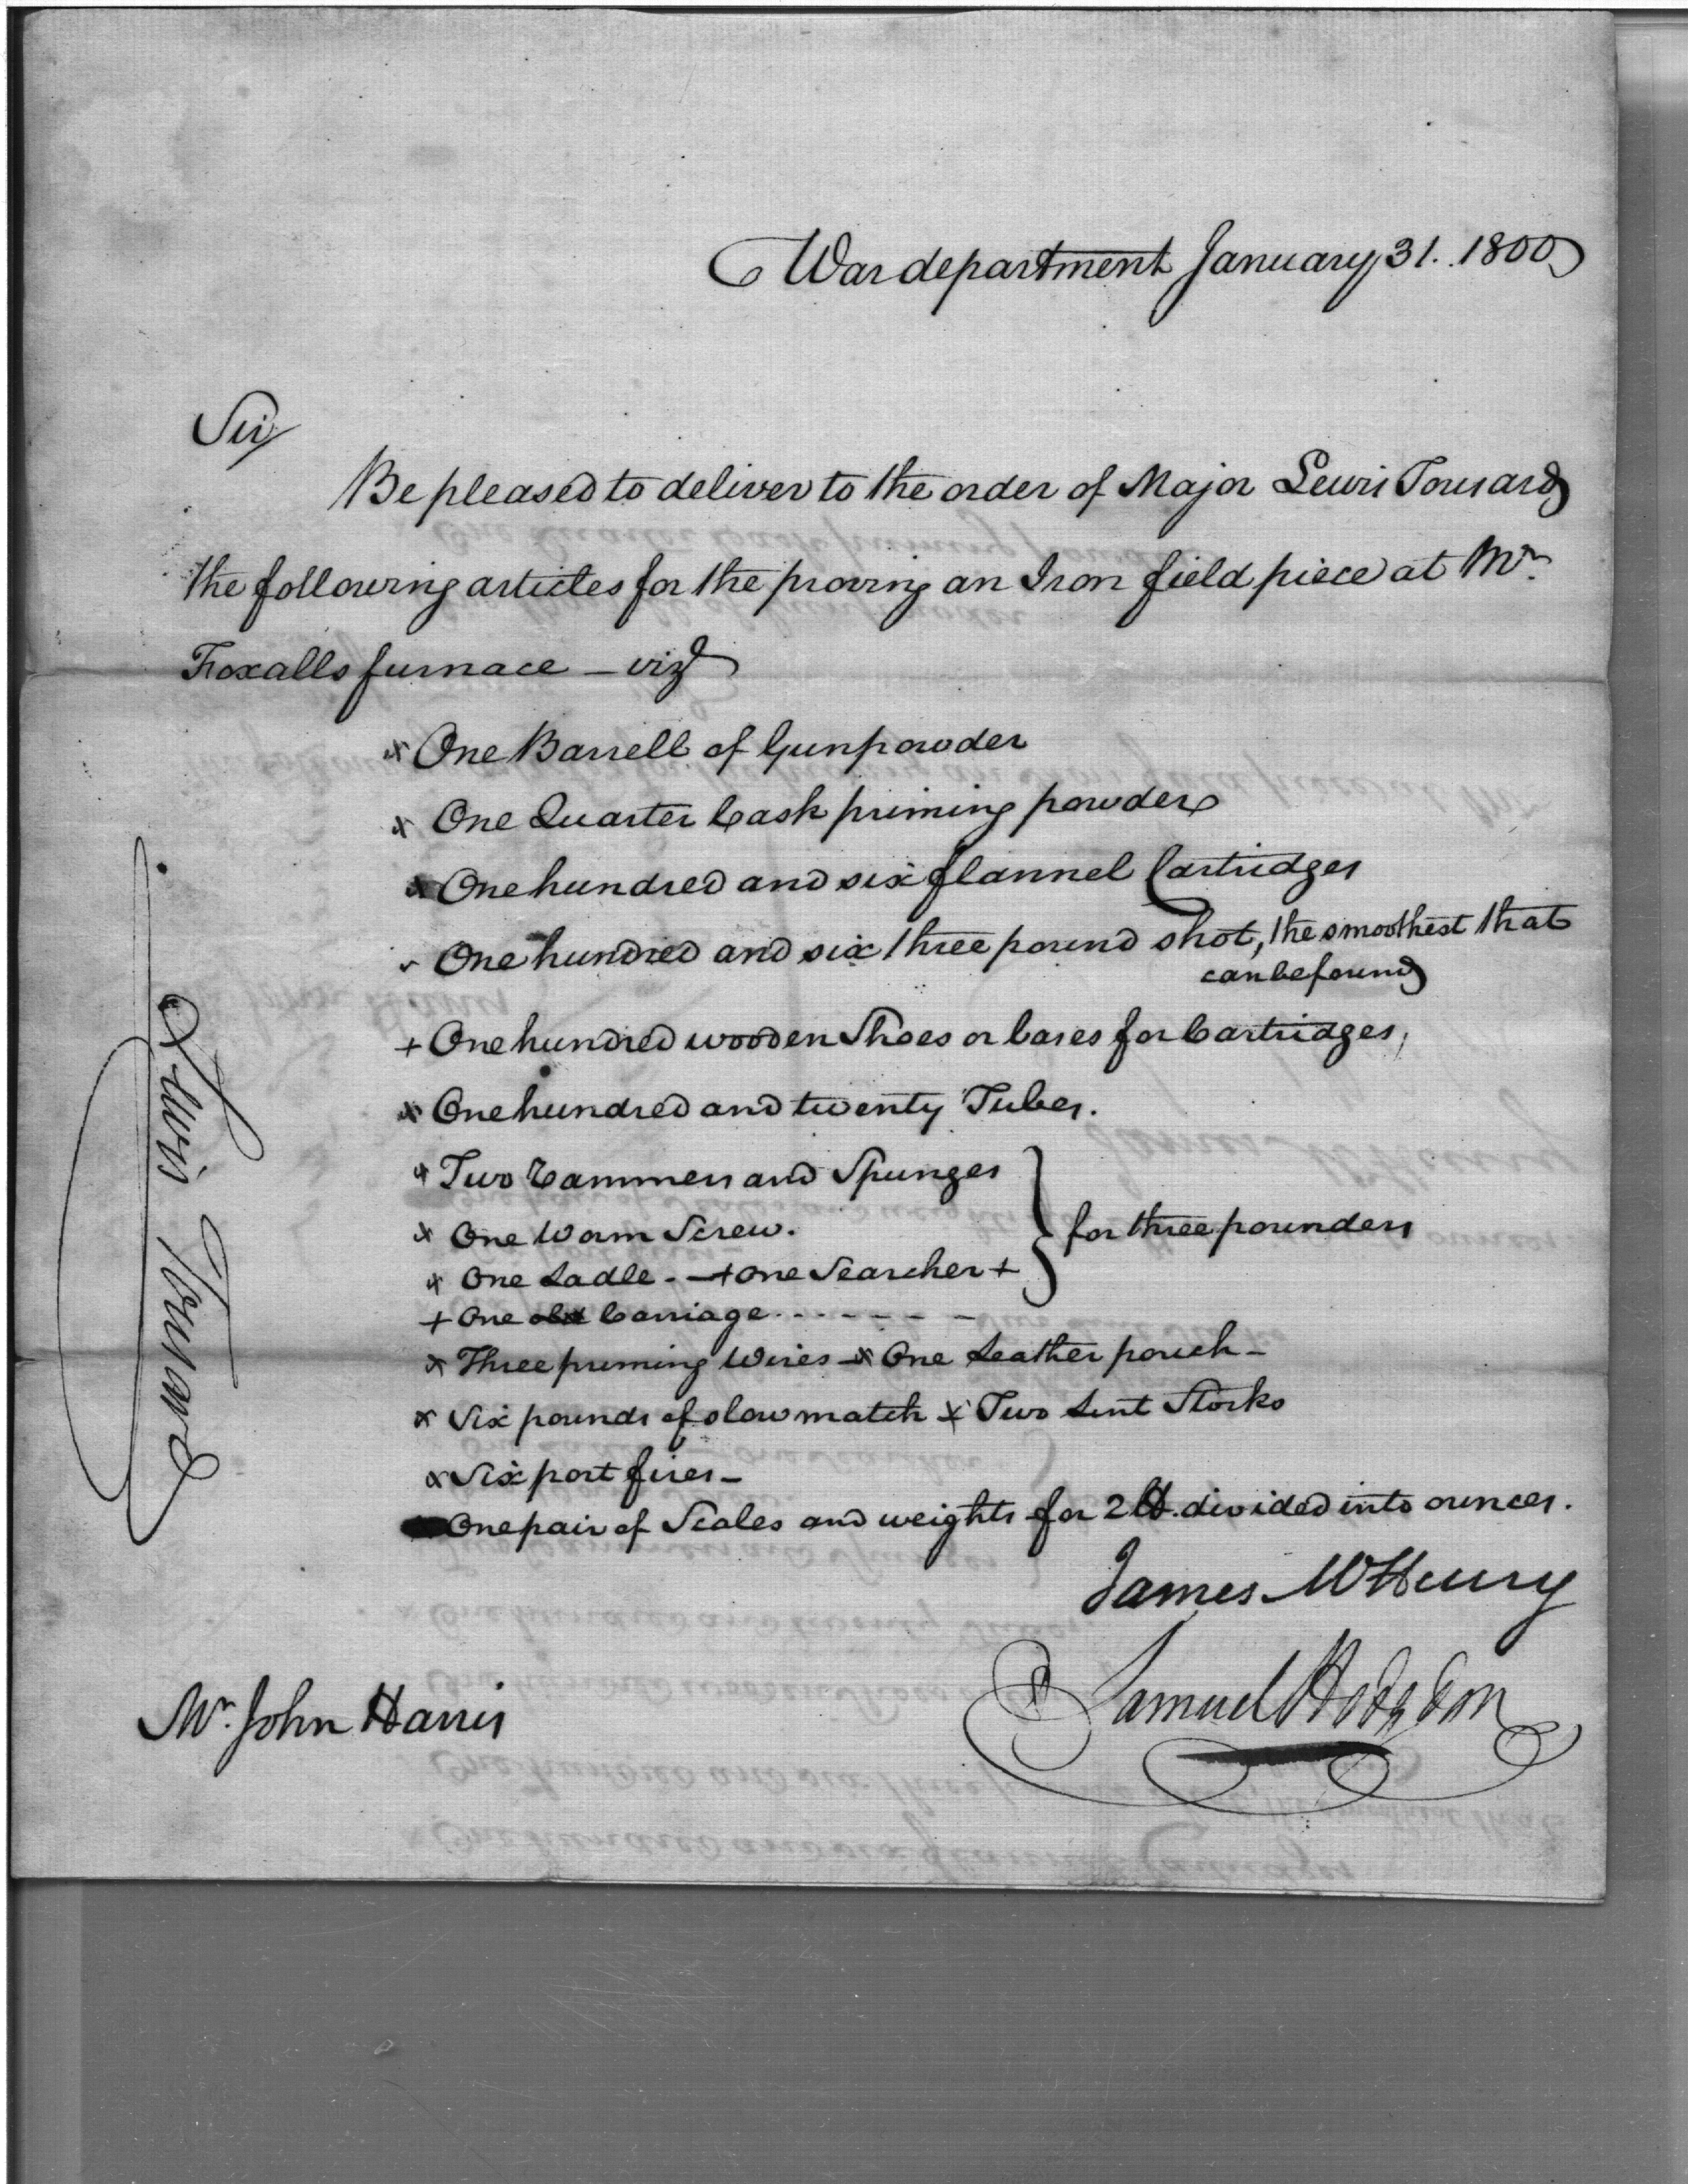 War department January 31. 1800
Sir
Be pleased to deliver to the order of Major Lewis Tousard
the following articles for the proving an Iron field piece at Mr.
Foxalls furnace - vizt
x One Barrell of Gunpowder
x One Quarter Cask priming powder
x One hundred and six flannel Cartridges
One hundred and six three pound shot, the smoothest that
can be found
+ One hundred wooden Shoes or bases for Cartridges,
x One hundred and twenty Tubes.
x Two Rammers and Spunges
x One Worm Screw.
for three pounders
x One Ladle. - + One Searcher +
+ One old Carriage
x Three priming Wires - x One Leather pouch -
x Six pounds of slow match x Two Lint Stocks
x Six port fires -
One pair of Scales and weights for 2 lb. divided into ounces.
James McHenry
Samuel Hodgdon
Mr. John Harris
Lewis Tousard